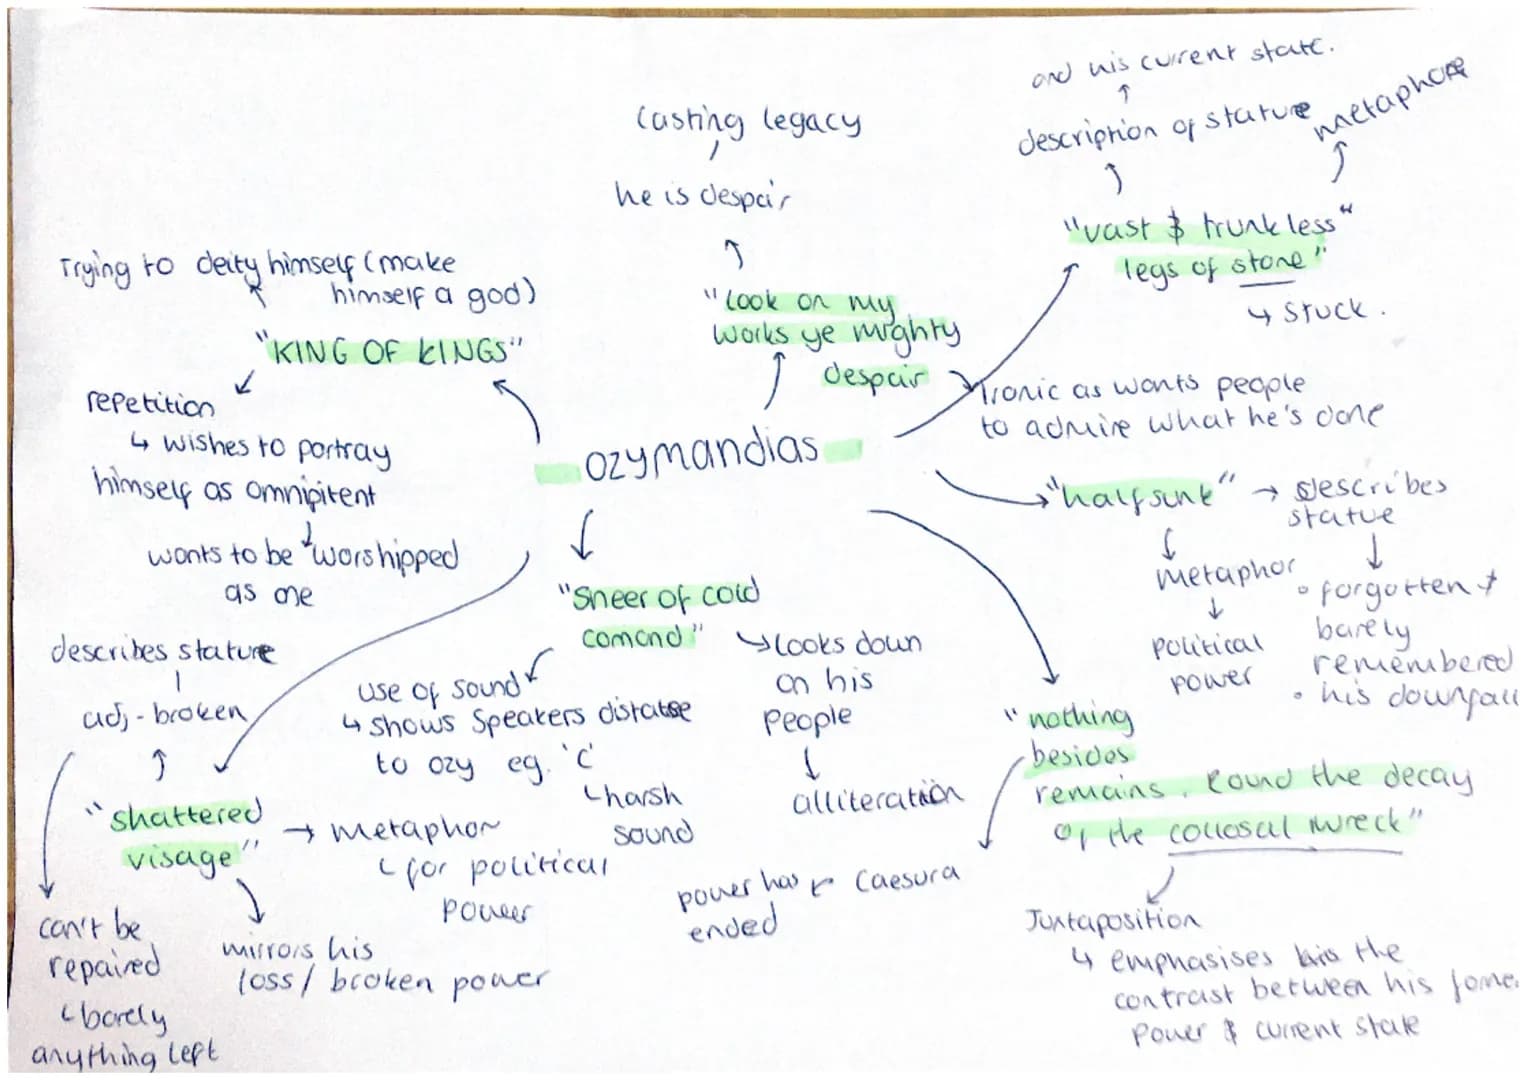 and his current state.
description of stature
metaphore
"vast & trunkless"
legs of stone"
↳ stuck.
Casting legacy
he is despair
"Look on my
works ye mighty
despair
Ironic as wants people
to admire what he's done
Trying to deity himself (make
himself a god)
"KING OF KINGS"
repetition
↳ wishes to portray
himself as omnipitent
wants to be worshipped
as one
ozymandias
"halfsunk" → describes
statue
metaphor
political
power
• forgotten +
barely
remembered
• his downfall
"Sneer of cold
comand"
→ Looks down
on his
people
alliteration
use of sound
↳ shows speakers distatse
to ozy eg. 'C'
↳ harsh
sound
describes stature
adj - broken
"shattered
visage"
→ metaphor
↳ for political
power
mirrors his
loss / broken power
can't be
repaired
↳ barely
anything left
"nothing
besides
remains. Round the decay
of the collosal wreck"
Caesura
power has
ended
Juxtaposition
↳ emphasises the
contrast between his forme
power & current state